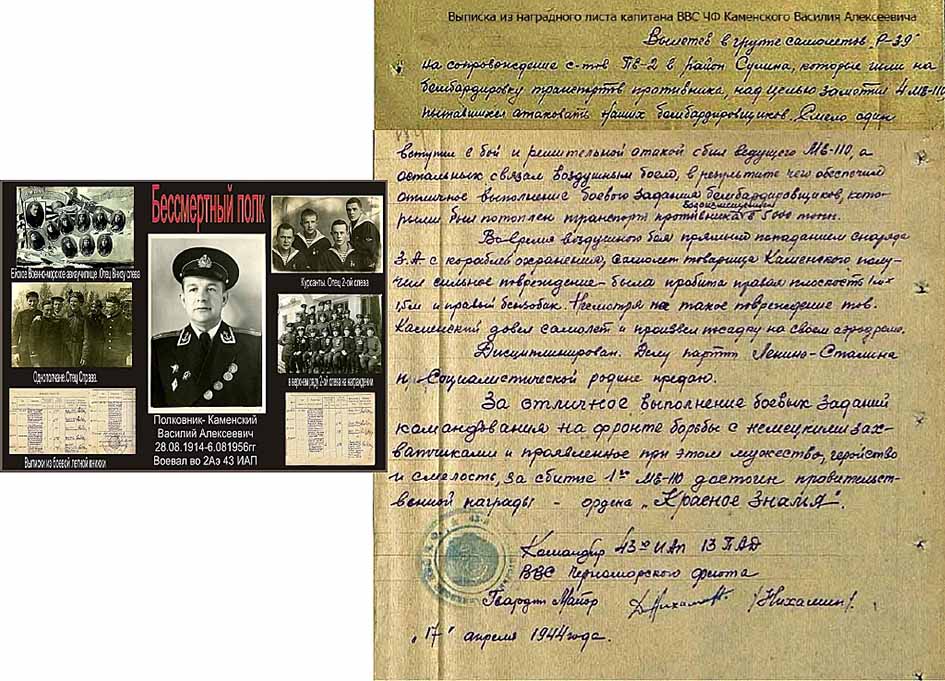 Бессмертный полк
Ейское Военно-морское-авиаучилище. Отец Внизу слева
Курсанты. Отец 2-ой слева
Однополчане. Отец Справа.
в верхнем ряду 2-ой слева на награждении
Полковник- Каменский
Василий Алексеевич
28.08.1914-6.081956гг
Воевал во 2Аэ 43 ИАП
Выписки из боевой летной книжки
Выписка из наградного листа капитана ВВС ЧФ Каменского Василия Алексеевича
Вылетев в группе самолетов "Р-39"
на сопровождение с-тов ПВ-2 в район Сулина, которые шли на
бомбардировку транспортов противника, над целью заметил 4 МЕ-110
пытавшихся атаковать наших бомбардировщиков. Смело один
вступил с бой и решительной атакой сбил ведущего МЕ-110, а
остальных связал воздушным боем, в результате чего обеспечил
отличное выполнение боевого задания бомбардировщиков, кото-
рыми был потоплен транспорт противника в 5000 тонн.
Во время воздушного боя прямым попаданием снаряда
З.А с корабля охранения, самолет товарища Каменского полу-
чил сильное повреждение - была пробита правая плоскость
1,5м и правый бензобак. Несмотря на такое повреждение тов.
Каменский довел самолет и произвел посадку на своем аэродроме.
Дисциплинирован. Делу партии Ленина-Сталина
и Социалистической родине предан.
За отличное выполнение боевых заданий
командования на фронте борьбы с немецкими зах-
ватчиками и проявленное при этом мужество, геройство
и смелость, за сбитие 1го МЕ-110 достоин правительст-
венной награды - ордена "Красное Знамя".
Командир 43го ИАП 13 ПАД
ВВС Черноморского флота
Гвардии Майор
"17" апреля 1944 года.